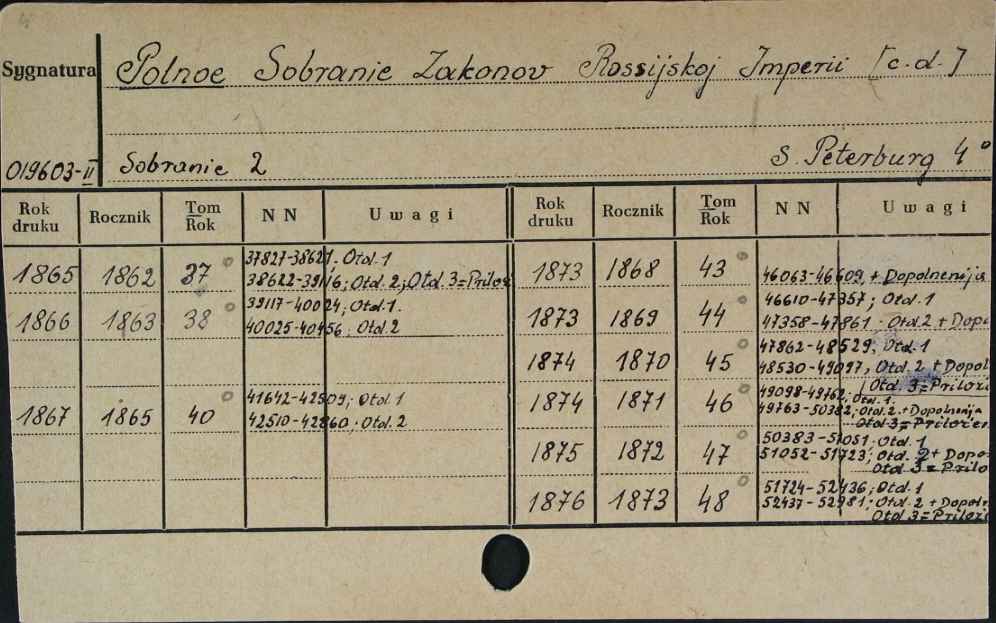 Sygnatura Polnoe Sobranie Zakonov Rossijskoj Imperii [c.d.]
019603-II Sobranie 2 S. Peterburg 4°
Rok druku Rocznik Tom Rok NN Uwagi Rok druku Rocznik Tom Rok NN Uwagi
1865 1862 37 37827-38621. Otd. 1
38622-39116; Otd. 2; Otd. 3=Prilož
1866 1863 38 39117-40024; Otd. 1.
40025-40456; Otd. 2
1867 1865 40 41642-42509; Otd. 1
42510-42860; Otd. 2
1873 1868 43 46063-46609, + Dopolnenija
1873 1869 44 46610-47357; Otd. 1
47358-47861. Otd. 2 + Dopo
1874 1870 45 47862-48529; Otd. 1
48530-49097, Otd. 2 + Dopol
Otd. 3=Priloži
1874 1871 46 49098-49762, Otd. 1.
49763-50382; Otd. 2. + Dopolnenija
Otd. 3=Priložen
1875 1872 47 50383-51051. Otd. 1
51052-51723; Otd. 2 + Dopo
Otd. 3=Prilo
1876 1873 48 51724-52436; Otd. 1
52437-52981; Otd. 2 + Dopoln
Otd. 3=Priloži